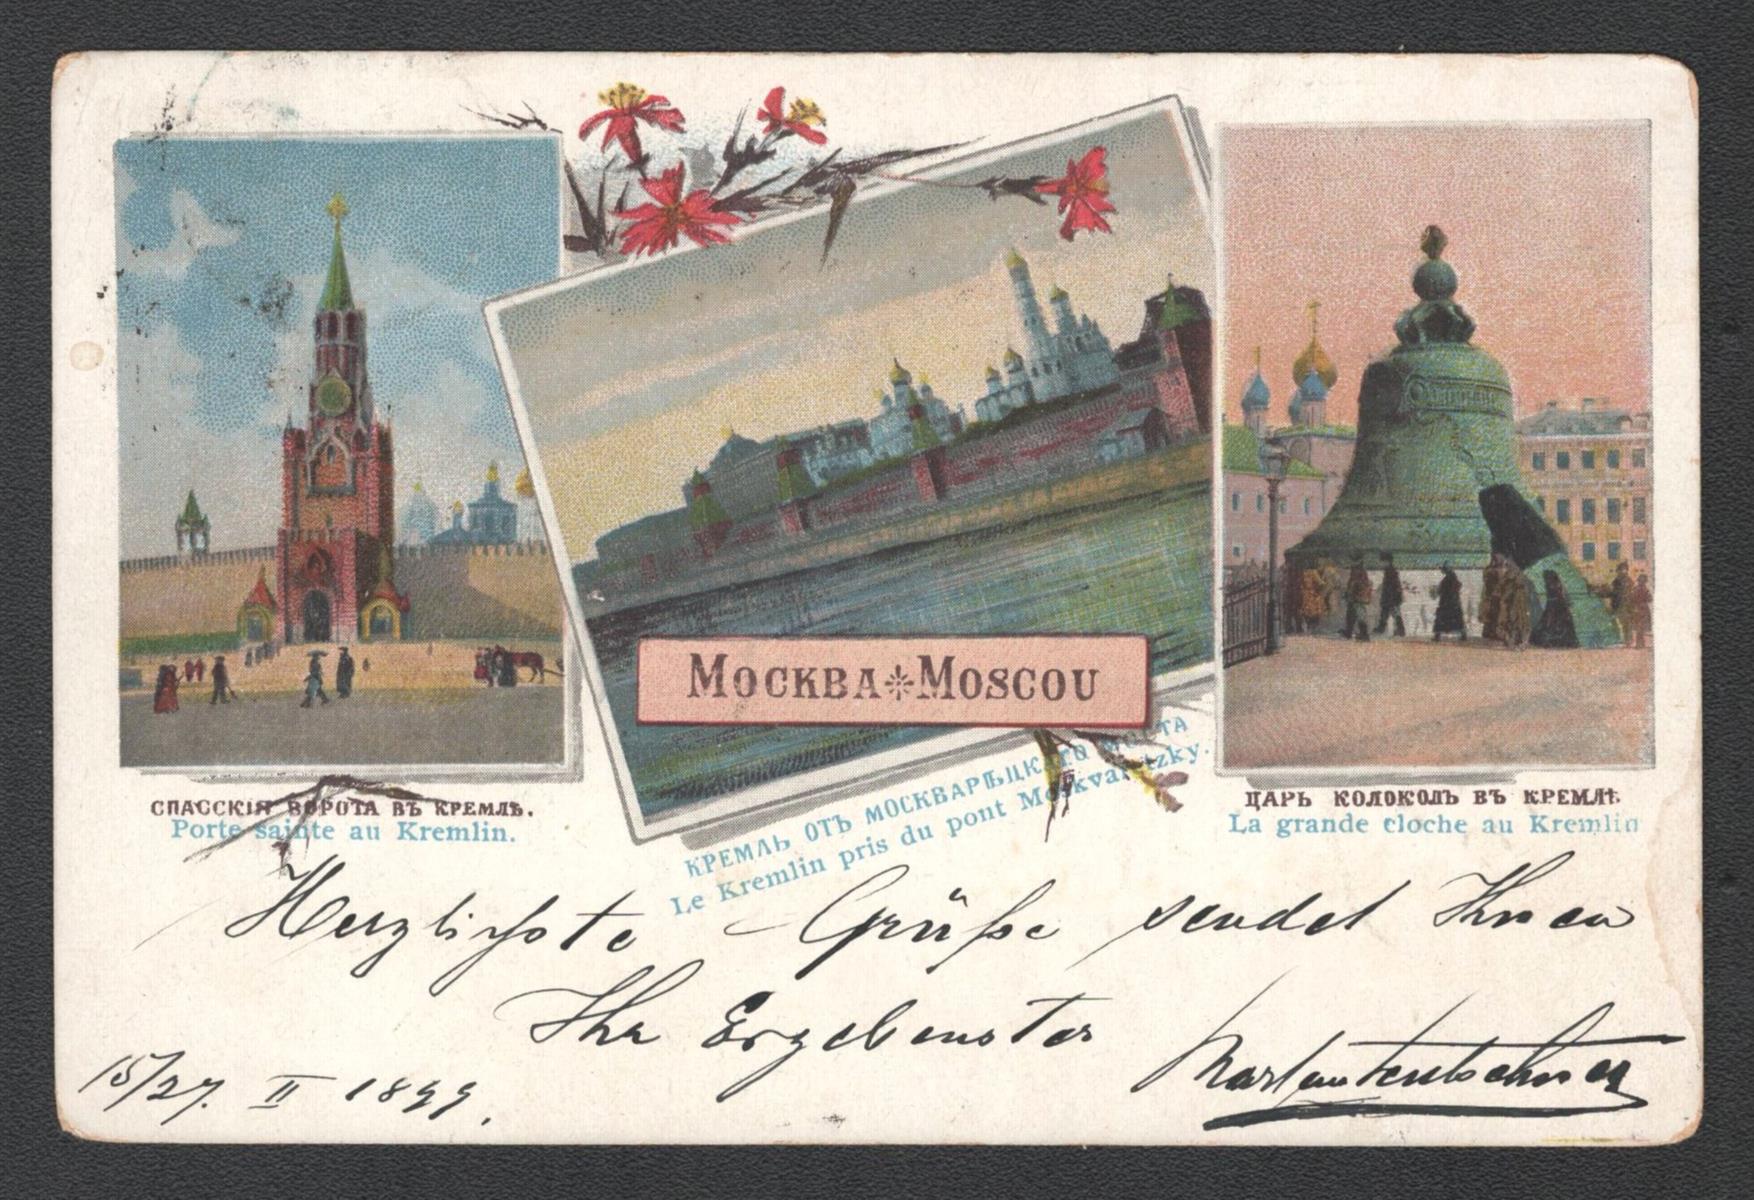 МОСКВА MOSCOU
СПАССКІЯ ВОРОТА ВЪ КРЕМЛѢ.
Porte sainte au Kremlin.
КРЕМЛЬ ОТЪ МОСКВАРѢЦКАГО МОСТА
Le Kremlin pris du pont Moskvaretzky.
ЦАРЬ КОЛОКОЛЪ ВЪ КРЕМЛѢ.
La grande cloche au Kremlin
Herzlichste Grüße sendet Ihnen
Ihr Ergebenster
15/27. II 1899.